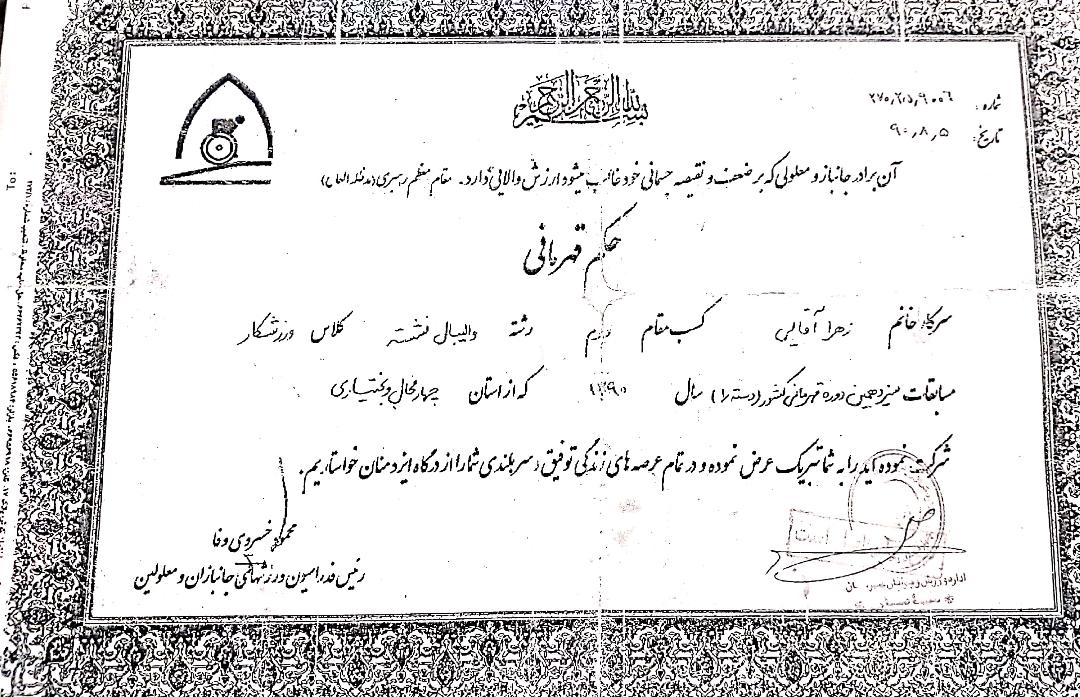 بسم الله الرحمن الرحیم
شماره:
تاریخ: ۹۰٫۸٫۵
آن برادر جانباز و معلولی که بر ضعف و نقیصه جسمانی خود غالب میشود ارزش والایی دارد. مقام معظم رهبری (مدظله العالی)
حکم قهرمانی
سرکار خانم زهرا آقایی کسب مقام رشته والیبال نشسته کلاس ورزشکار
مسابقات سیزدهمین دوره قهرمانی کشور (دسته ۱) سال ۱۳۹۰ که از استان چهارمحال و بختیاری
شرکت نموده اید را به شما تبریک عرض نموده و در تمام عرصه های زندگی توفیق و سربلندی شما را از درگاه ایزد منان خواستاریم.
محمود خسروی وفا
رئیس فدراسیون ورزشهای جانبازان و معلولین
To: